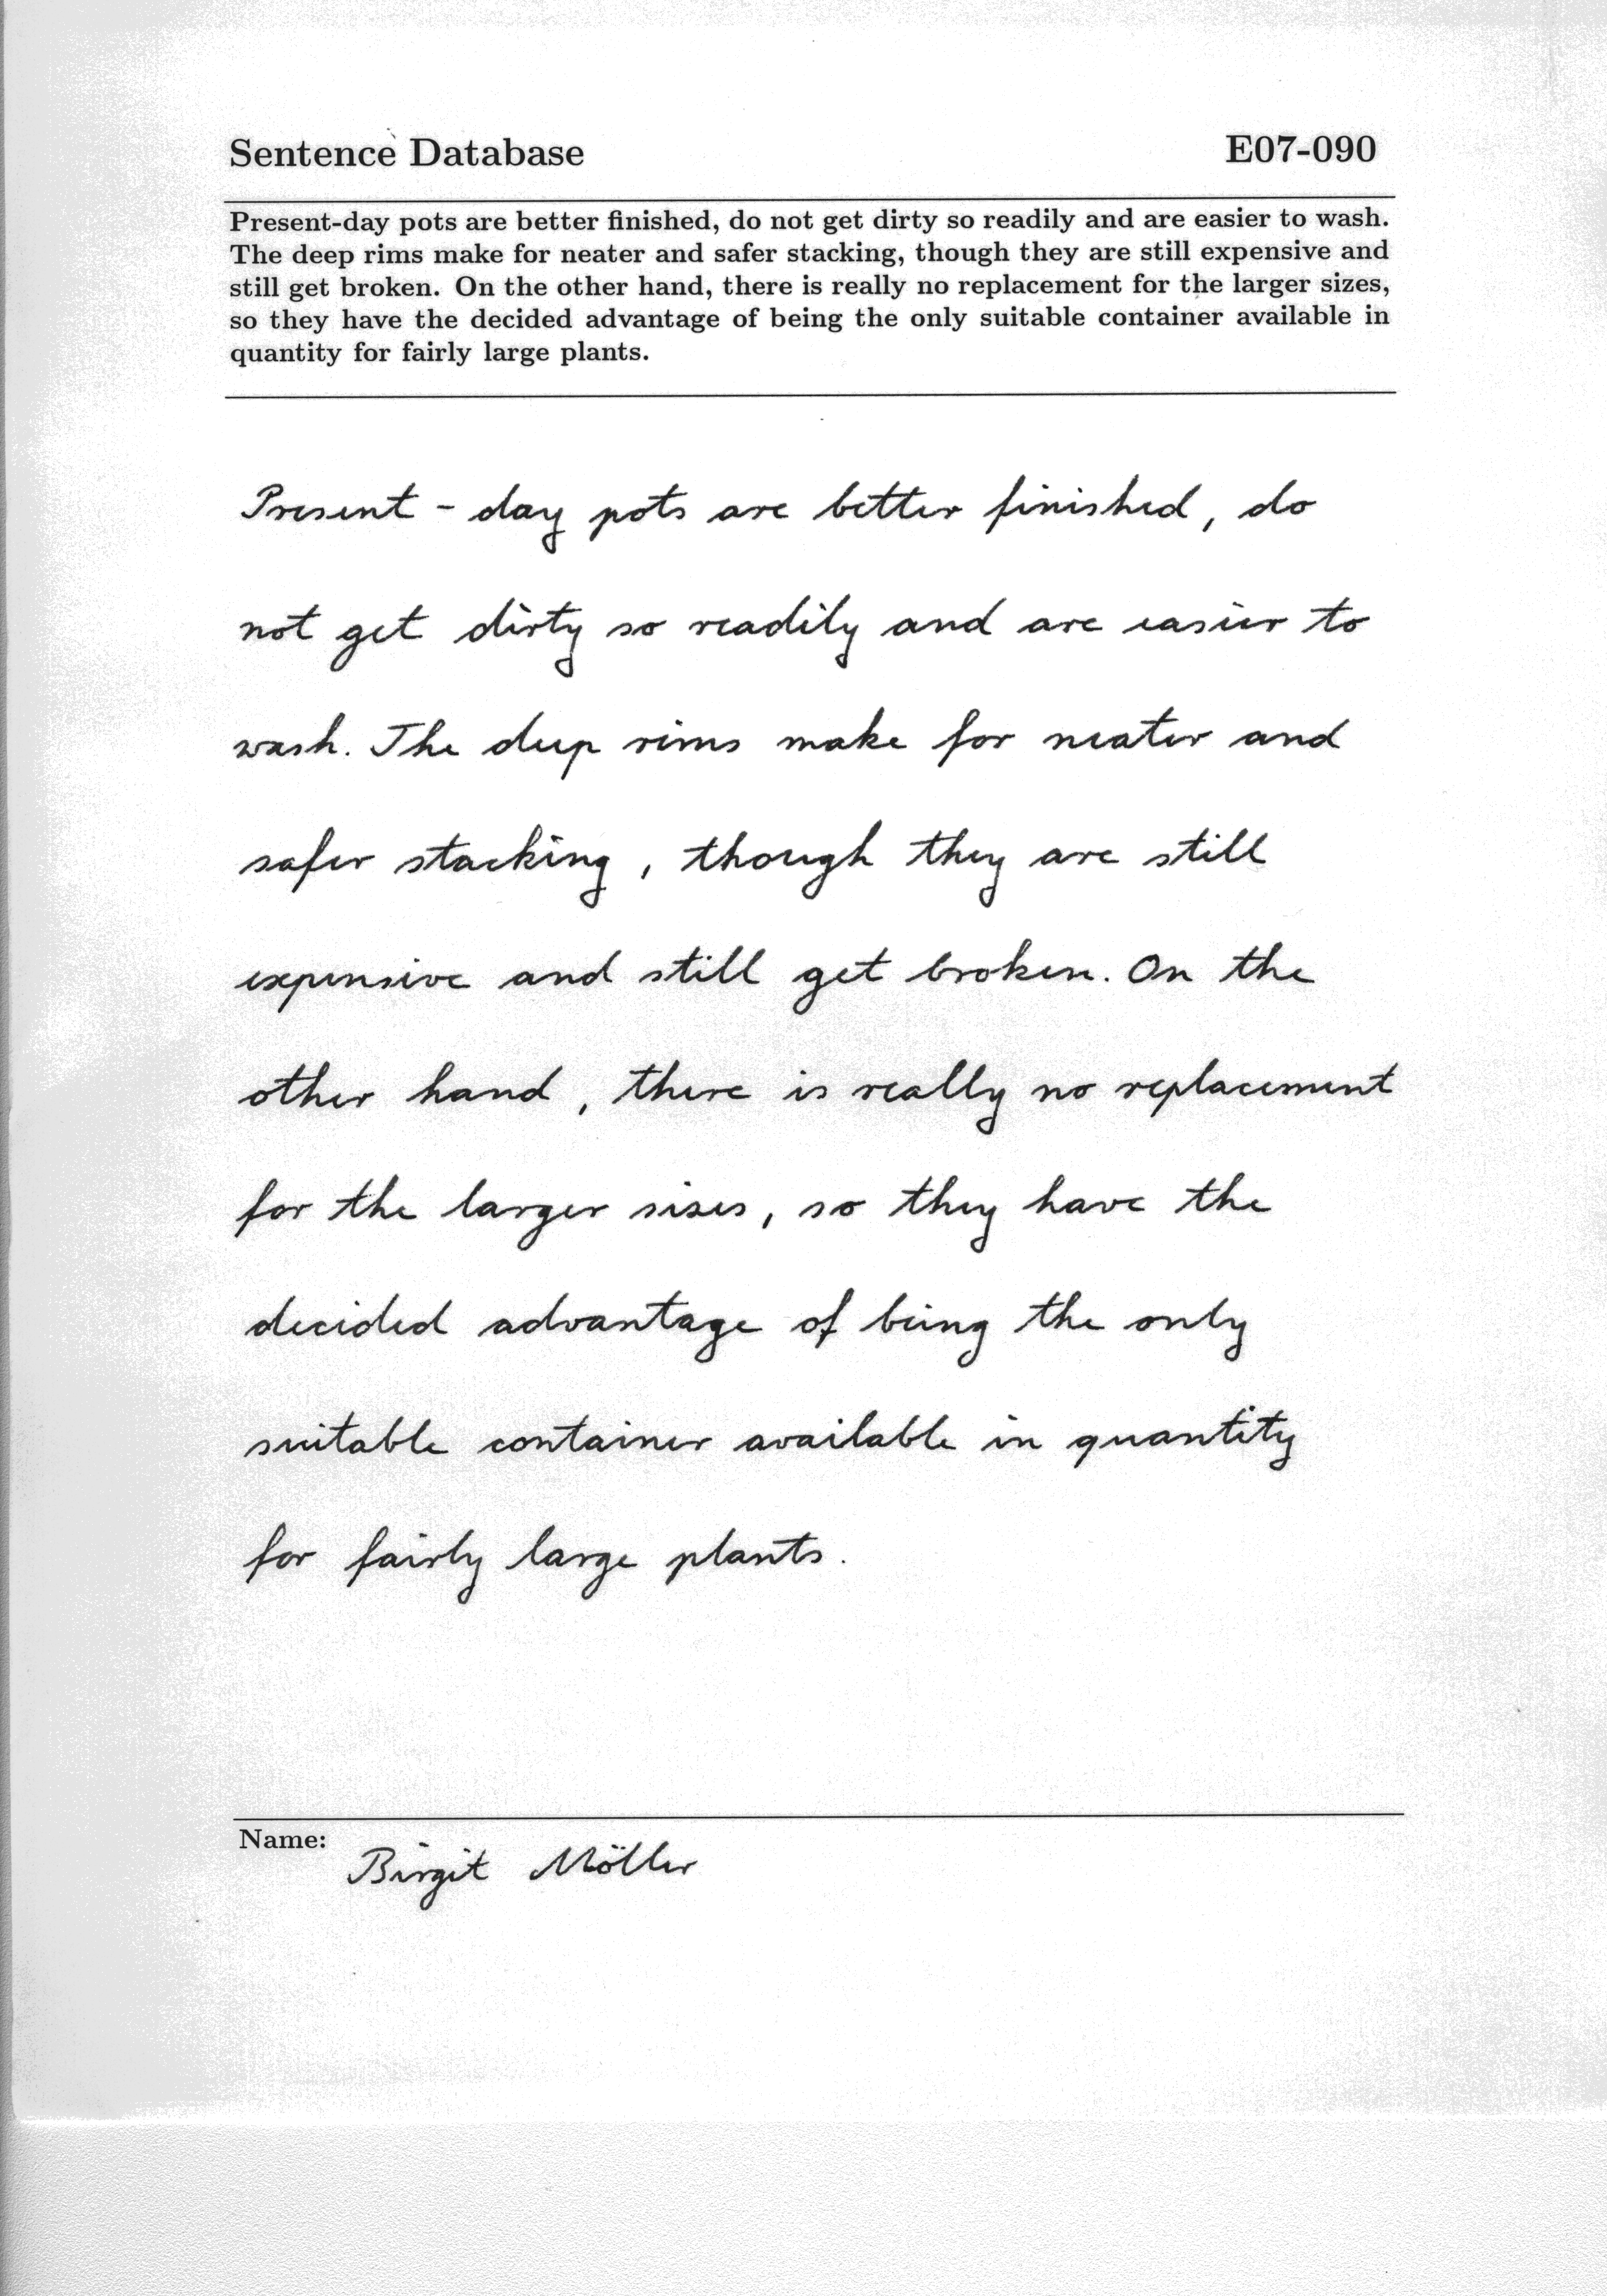 Sentence Database E07-090
Present-day pots are better finished, do not get dirty so readily and are easier to wash.
The deep rims make for neater and safer stacking, though they are still expensive and
still get broken. On the other hand, there is really no replacement for the larger sizes,
so they have the decided advantage of being the only suitable container available in
quantity for fairly large plants.
Present - day pots are better finished, do
not get dirty so readily and are easier to
wash. The deep rims make for neater and
safer stacking, though they are still
expensive and still get broken. On the
other hand, there is really no replacement
for the larger sizes, so they have the
decided advantage of being the only
suitable container available in quantity
for fairly large plants.
Name: Birgit Möller